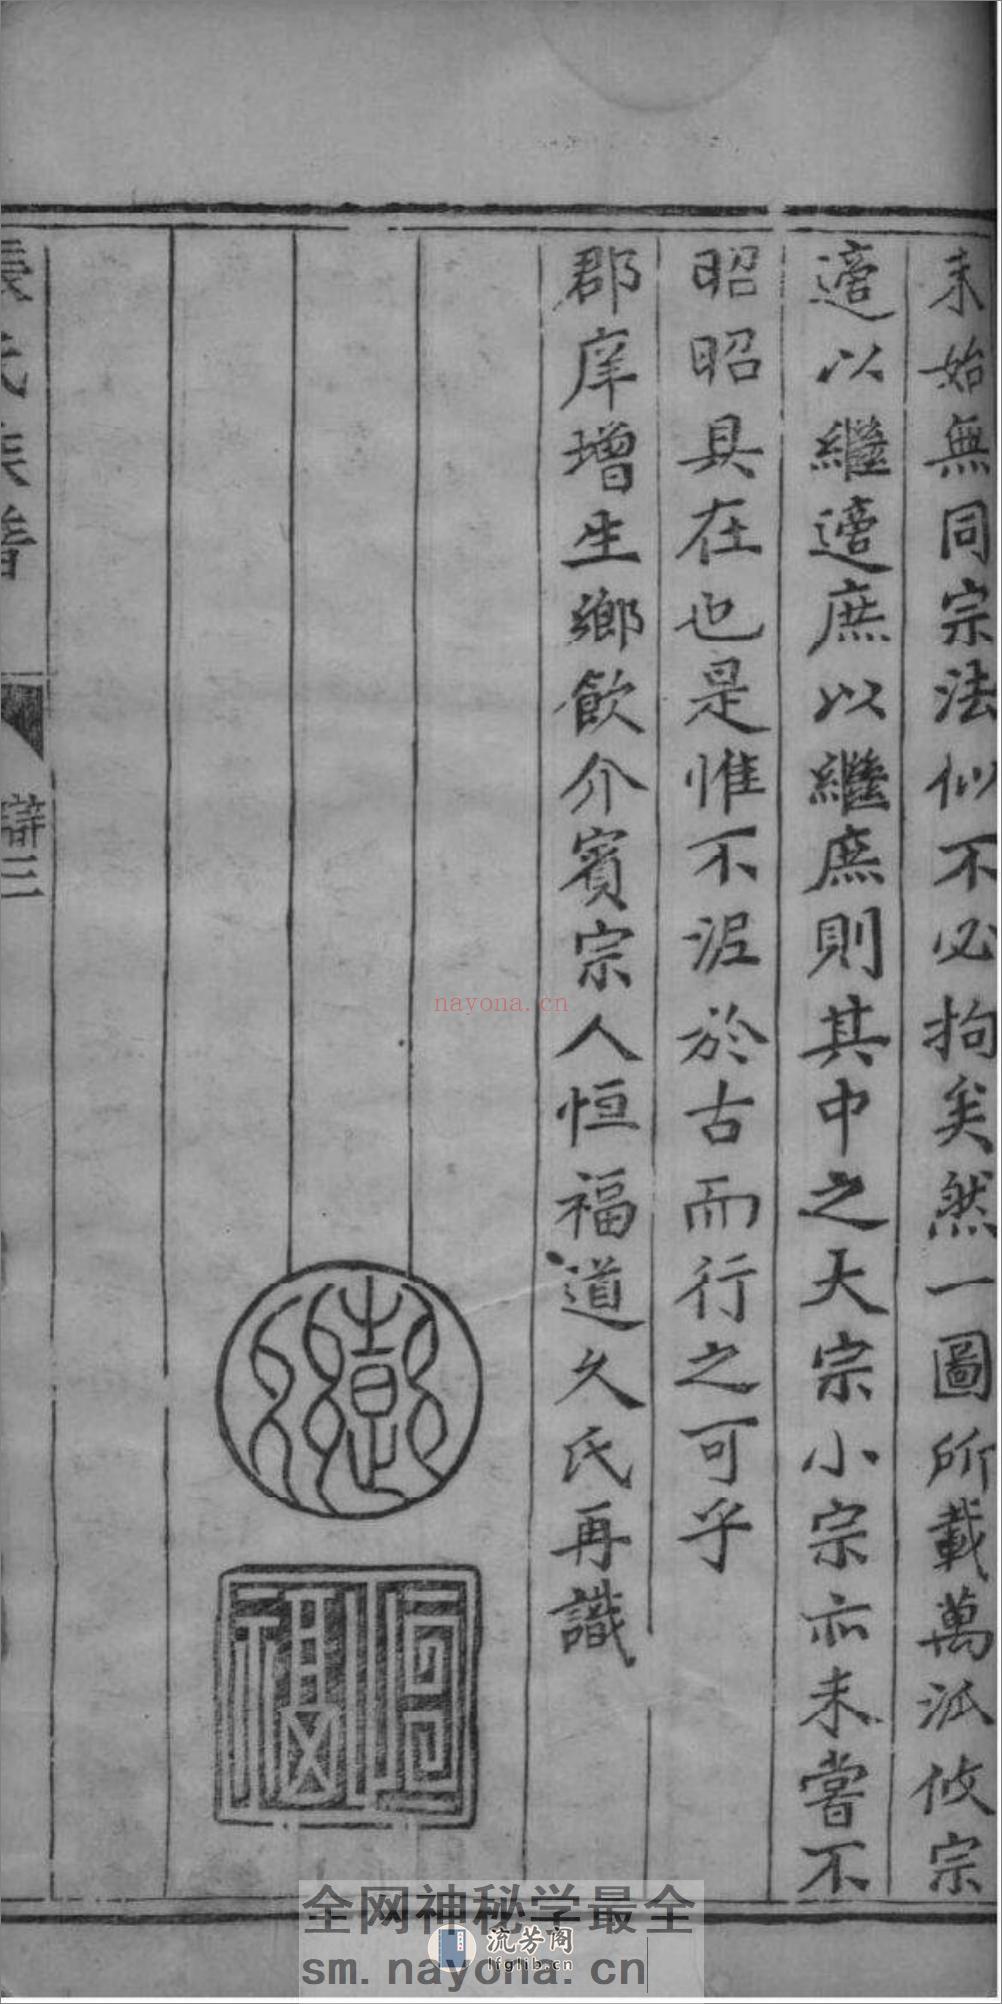 未始無同宗法似不必拘矣然一圖所載萬派攸宗
適以繼適庶以繼庶則其中之大宗小宗亦未嘗不
昭昭具在也是惟不泥於古而行之可乎
郡庠增生鄉飲介賓宗人恒福道久氏再識
恒福
張氏族譜
辯三
nayona.cn
全网神秘学最全
流芳阁
lfglib.cn
sm.nayona.cn